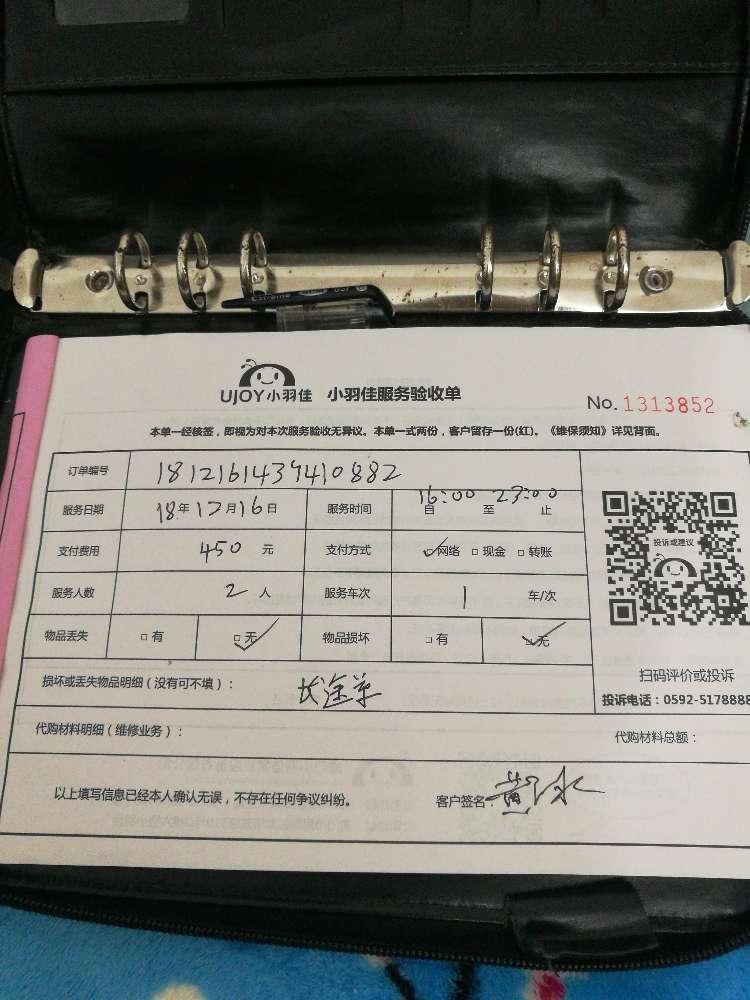 UJOY小羽佳 小羽佳服务验收单
No. 1313852
本单一经核签，即视为对本次服务验收无异议。本单一式两份，客户留存一份(红)。《维保须知》详见背面。
订单编号 1812161439410882
服务日期 18年12月16日 服务时间 16:00 23:00 自 至 止
投诉或建议
支付费用 450 元 支付方式 ☑网络 □现金 □转账
服务人数 2 人 服务车次 1 车/次
物品丢失 □有 ☑无 物品损坏 □有 ☑无
扫码评价或投诉
损坏或丢失物品明细（没有可不填）： 长途单
投诉电话：0592-5178888
代购材料明细（维修业务）： 代购材料总额：
以上填写信息已经本人确认无误，不存在任何争议纠纷。 客户签名： 黄